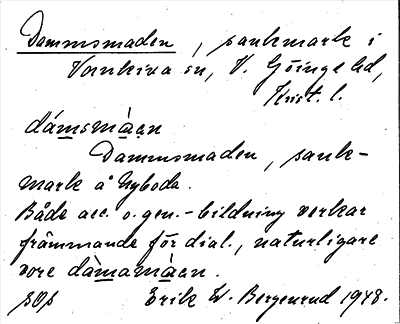 Dammsmaden, sankmark i
Vankiva sn, V. Göinge hd,
Krist. l.
dámsmàen
Dammsmaden, sank-
mark å Nyboda.
Både acc. o. gen.-bildning verkar
främmande för dial., naturligare
vore dàmamàen.
Erik W. Bergenrud 1948.